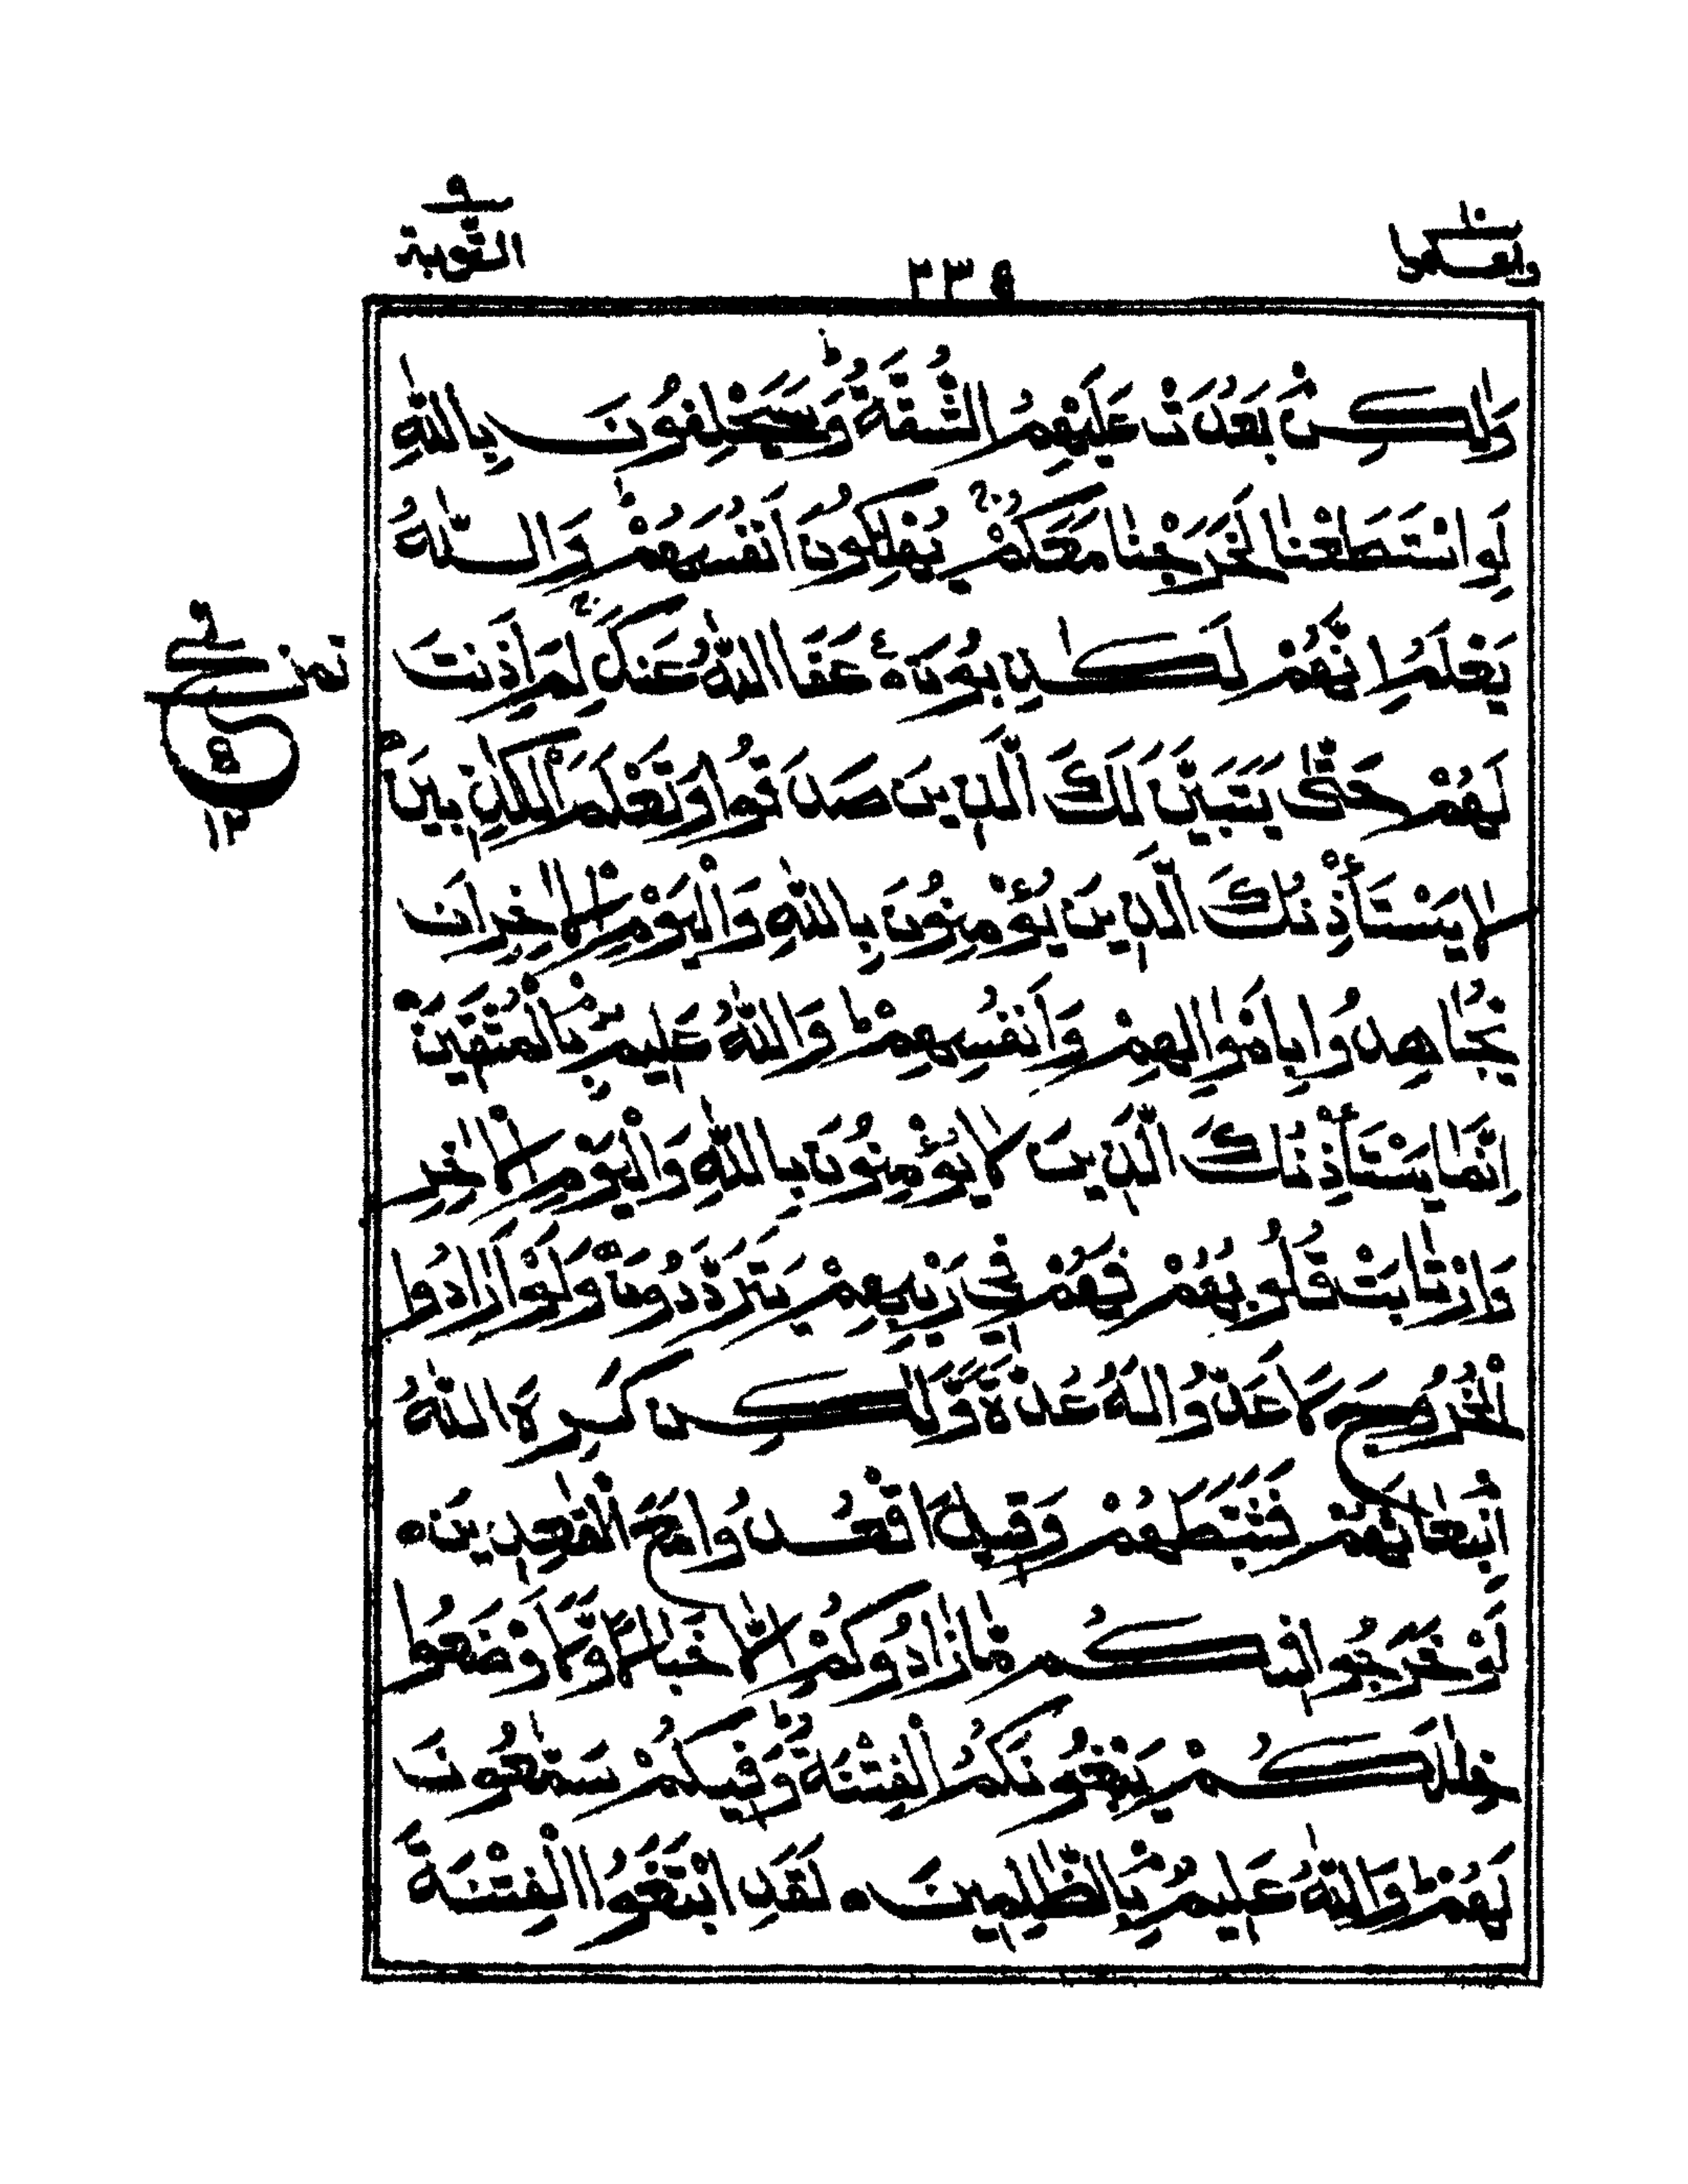 واعلموا ١٠
٢٣٥
٩ التوبة
وَلٰكِنْۢ بَعُدَتْ عَلَيْهِمُ الشُّقَّةُ ؕ وَسَيَحْلِفُوْنَ بِاللّٰهِ
لَوِ اسْتَطَعْنَا لَخَرَجْنَا مَعَكُمْ ۚ يُهْلِكُوْنَ اَنْفُسَهُمْ ؕ وَاللّٰهُ
يَعْلَمُ اِنَّهُمْ لَكٰذِبُوْنَ ۝ عَفَا اللّٰهُ عَنْكَ ۚ لِمَ اَذِنْتَ
لَهُمْ حَتّٰى يَتَبَيَّنَ لَكَ الَّذِيْنَ صَدَقُوْا وَتَعْلَمَ الْكٰذِبِيْنَ ۝
لَا يَسْتَأْذِنُكَ الَّذِيْنَ يُؤْمِنُوْنَ بِاللّٰهِ وَالْيَوْمِ الْاٰخِرِ اَنْ
يُّجَاهِدُوْا بِاَمْوَالِهِمْ وَاَنْفُسِهِمْ ؕ وَاللّٰهُ عَلِيْمٌۢ بِالْمُتَّقِيْنَ ۝
اِنَّمَا يَسْتَأْذِنُكَ الَّذِيْنَ لَا يُؤْمِنُوْنَ بِاللّٰهِ وَالْيَوْمِ الْاٰخِرِ
وَارْتَابَتْ قُلُوْبُهُمْ فَهُمْ فِيْ رَيْبِهِمْ يَتَرَدَّدُوْنَ ۝ وَلَوْ اَرَادُوا
الْخُرُوْجَ لَاَعَدُّوْا لَهٗ عُدَّةً وَّلٰكِنْ كَرِهَ اللّٰهُ
انْۢبِعَاثَهُمْ فَثَبَّطَهُمْ وَقِيْلَ اقْعُدُوْا مَعَ الْقٰعِدِيْنَ ۝
لَوْ خَرَجُوْا فِيْكُمْ مَّا زَادُوْكُمْ اِلَّا خَبَالًا وَّلَا۟اَوْضَعُوْا
خِلٰلَكُمْ يَبْغُوْنَكُمُ الْفِتْنَةَ ۚ وَفِيْكُمْ سَمّٰعُوْنَ
لَهُمْ ؕ وَاللّٰهُ عَلِيْمٌۢ بِالظّٰلِمِيْنَ ۝ لَقَدِ ابْتَغَوُا الْفِتْنَةَ
ع
١٣